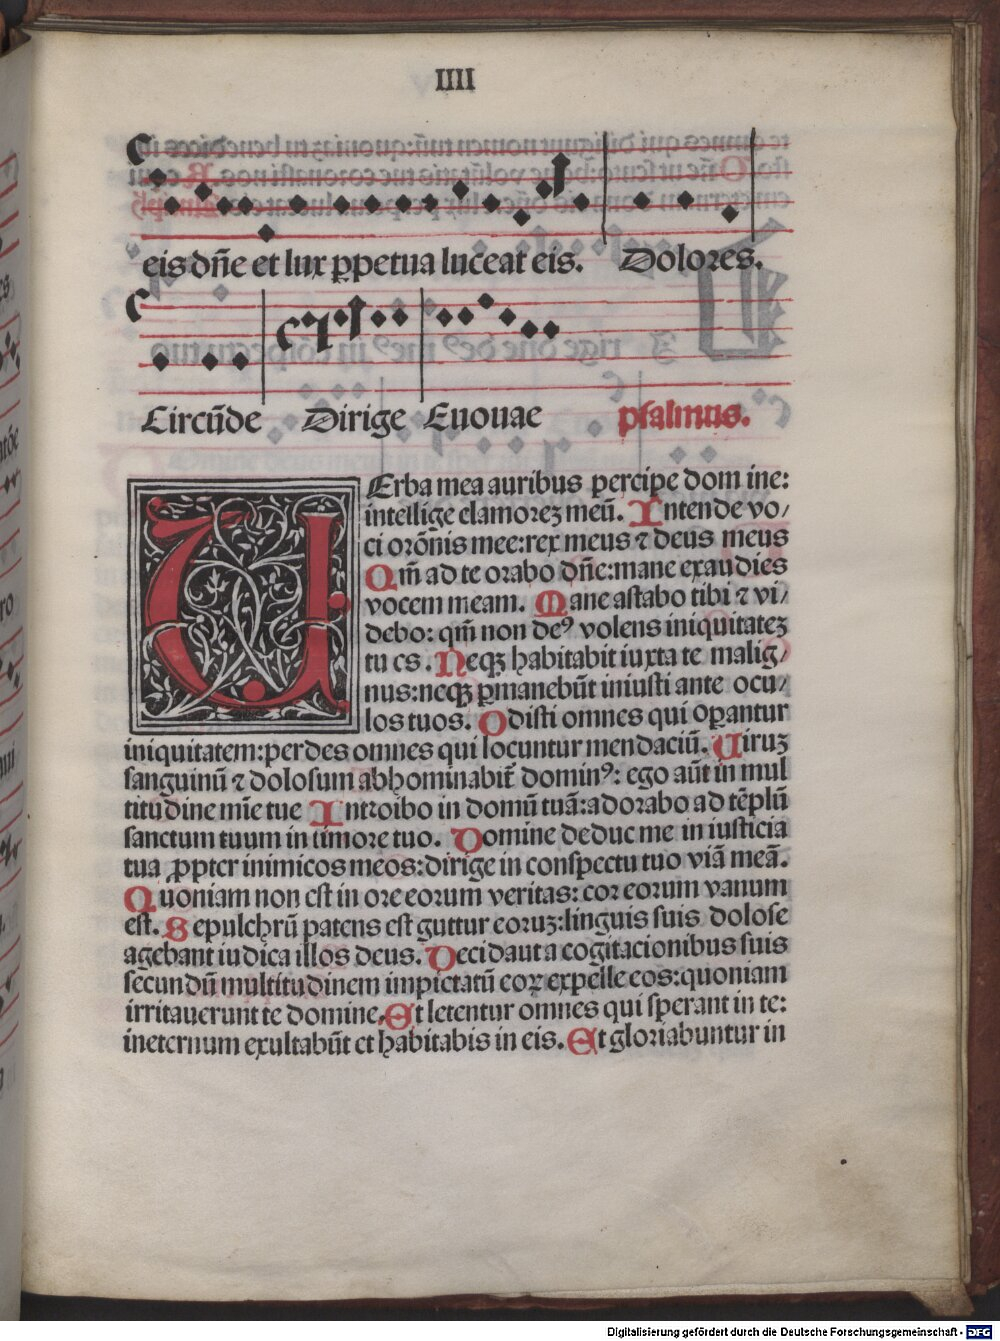 IIII
eis dn̄e et lux ꝑpetua luceat eis. Dolores.
Circūde Dirige Euouae psalmus.
UErba mea auribus percipe dom ine:
intellige clamorez meū. Intende vo/
ci orōnis mee:rex meus ⁊ deus meus
Qm̄ ad te orabo dn̄e:mane exaudies
vocem meam. Mane astabo tibi ⁊ vi/
debo: qm̄ non deꝰ volens iniquitatez
tu es. Neqꝫ habitabit iuxta te malig/
nus:neqꝫ ꝑmanebūt iniusti ante ocu/
los tuos. Odisti omnes qui oꝑantur
iniquitatem:perdes omnes qui locuntur mendaciū. Uiruz
sanguinū ⁊ dolosum abhominabit̄ dominꝰ: ego aūt in mul
titudine mīe tue Introibo in domū tuā:adorabo ad tēplū
sanctum tuum in timore tuo. Domine deduc me in iusticia
tua ꝓpter inimicos meos:dirige in conspectu tuo viā meā.
Quoniam non est in ore eorum veritas: cor eorum vanum
est. Sepulchrū patens est guttur eoruz:linguis suis dolose
agebant iudica illos deus. Decidant a cogitacionibus suis
secundū multitudinem impietatū eoꝝ expelle eos:quoniam
irritauerunt te domine. Et letentur omnes qui sperant in te:
ineternum exultabūt et habitabis in eis. Et gloriabuntur in
Digitalisierung gefördert durch die Deutsche Forschungsgemeinschaft - DFG